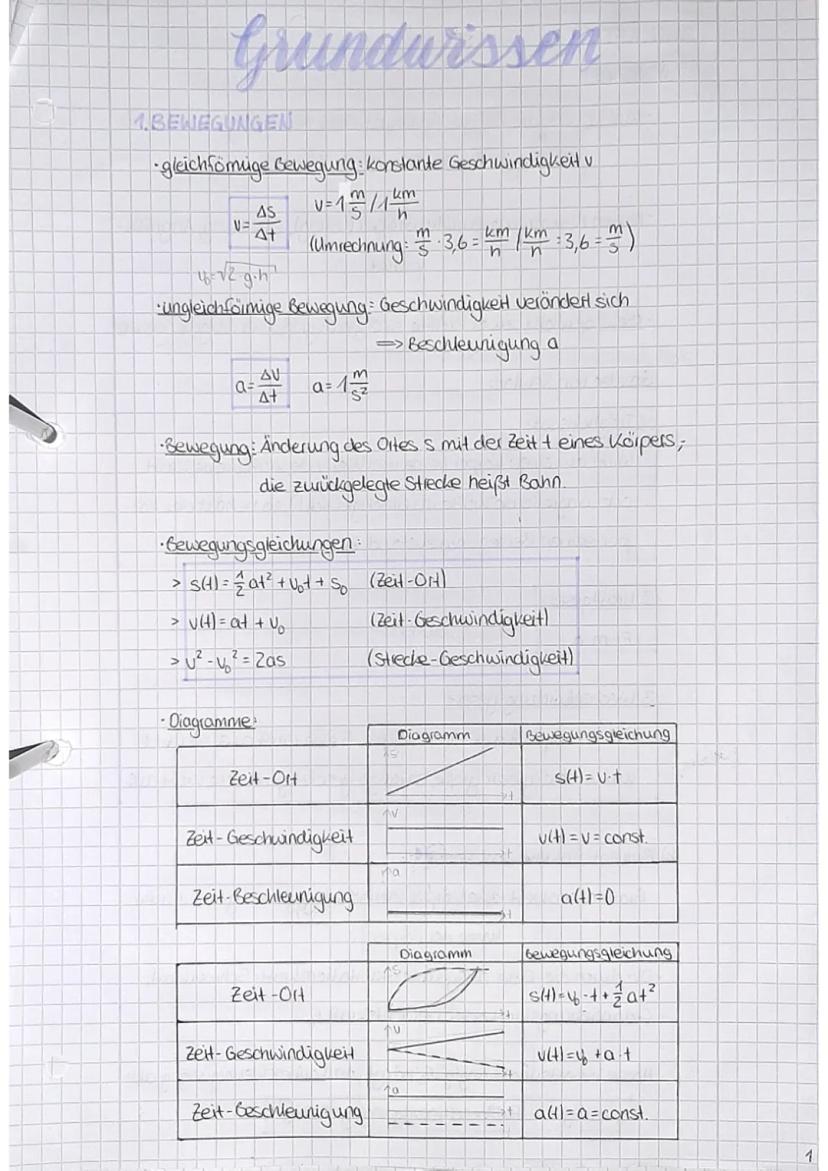 Grundwissen
1. BEWEGUNGEN
· gleichförmige Bewegung: konstante Geschwindigkeit v
v = Δs/Δt v = 1 m/s / 1 km/h
(Umrechnung: m/s · 3,6 = km/h / km/h : 3,6 = m/s)
v₀ = √2·g·h
· ungleichförmige Bewegung: Geschwindigkeit verändert sich
⇒ Beschleunigung a
a = Δv/Δt a = 1 m/s²
· Bewegung: Änderung des Ortes s mit der Zeit t eines Körpers;
die zurückgelegte Strecke heißt Bahn.
· Bewegungsgleichungen:
> s(t) = 1/2 at² + v₀t + s₀ (Zeit-Ort)
> v(t) = at + v₀ (Zeit-Geschwindigkeit)
> v² - v₀² = 2as (Strecke-Geschwindigkeit)
· Diagramme:
Diagramm Bewegungsgleichung
Zeit-Ort s t s(t) = v·t
Zeit-Geschwindigkeit v t v(t) = v = const.
Zeit-Beschleunigung a t a(t) = 0
Diagramm Bewegungsgleichung
Zeit-Ort s t s(t) = v₀·t + 1/2 at²
Zeit-Geschwindigkeit v t v(t) = v₀ + a·t
Zeit-Beschleunigung a t a(t) = a = const.
1